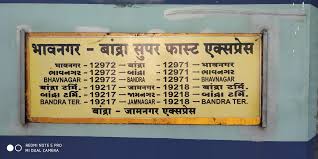 भावनगर - बांद्रा सुपर फास्ट एक्सप्रेस
भावनगर – 12972 – बांद्रा – 12971 – भावनगर
ભાવનગર – 12972 – બાંદ્રા – 12971 – ભાવનગર
BHAVNAGAR – 12972 – BANDRA – 12971 – BHAVNAGAR
बांद्रा टर्मि. – 19217 – जामनगर – 19218 – बांद्रा टर्मि.
બાંદ્રા ટર્મિ. – 19217 – જામનગર – 19218 – બાંદ્રા ટર્મિ.
BANDRA TER. – 19217 – JAMNAGAR – 19218 – BANDRA TER.
बांद्रा - जामनगर एक्सप्रेस
REDMI NOTE 5 PRO
MI DUAL CAMERA